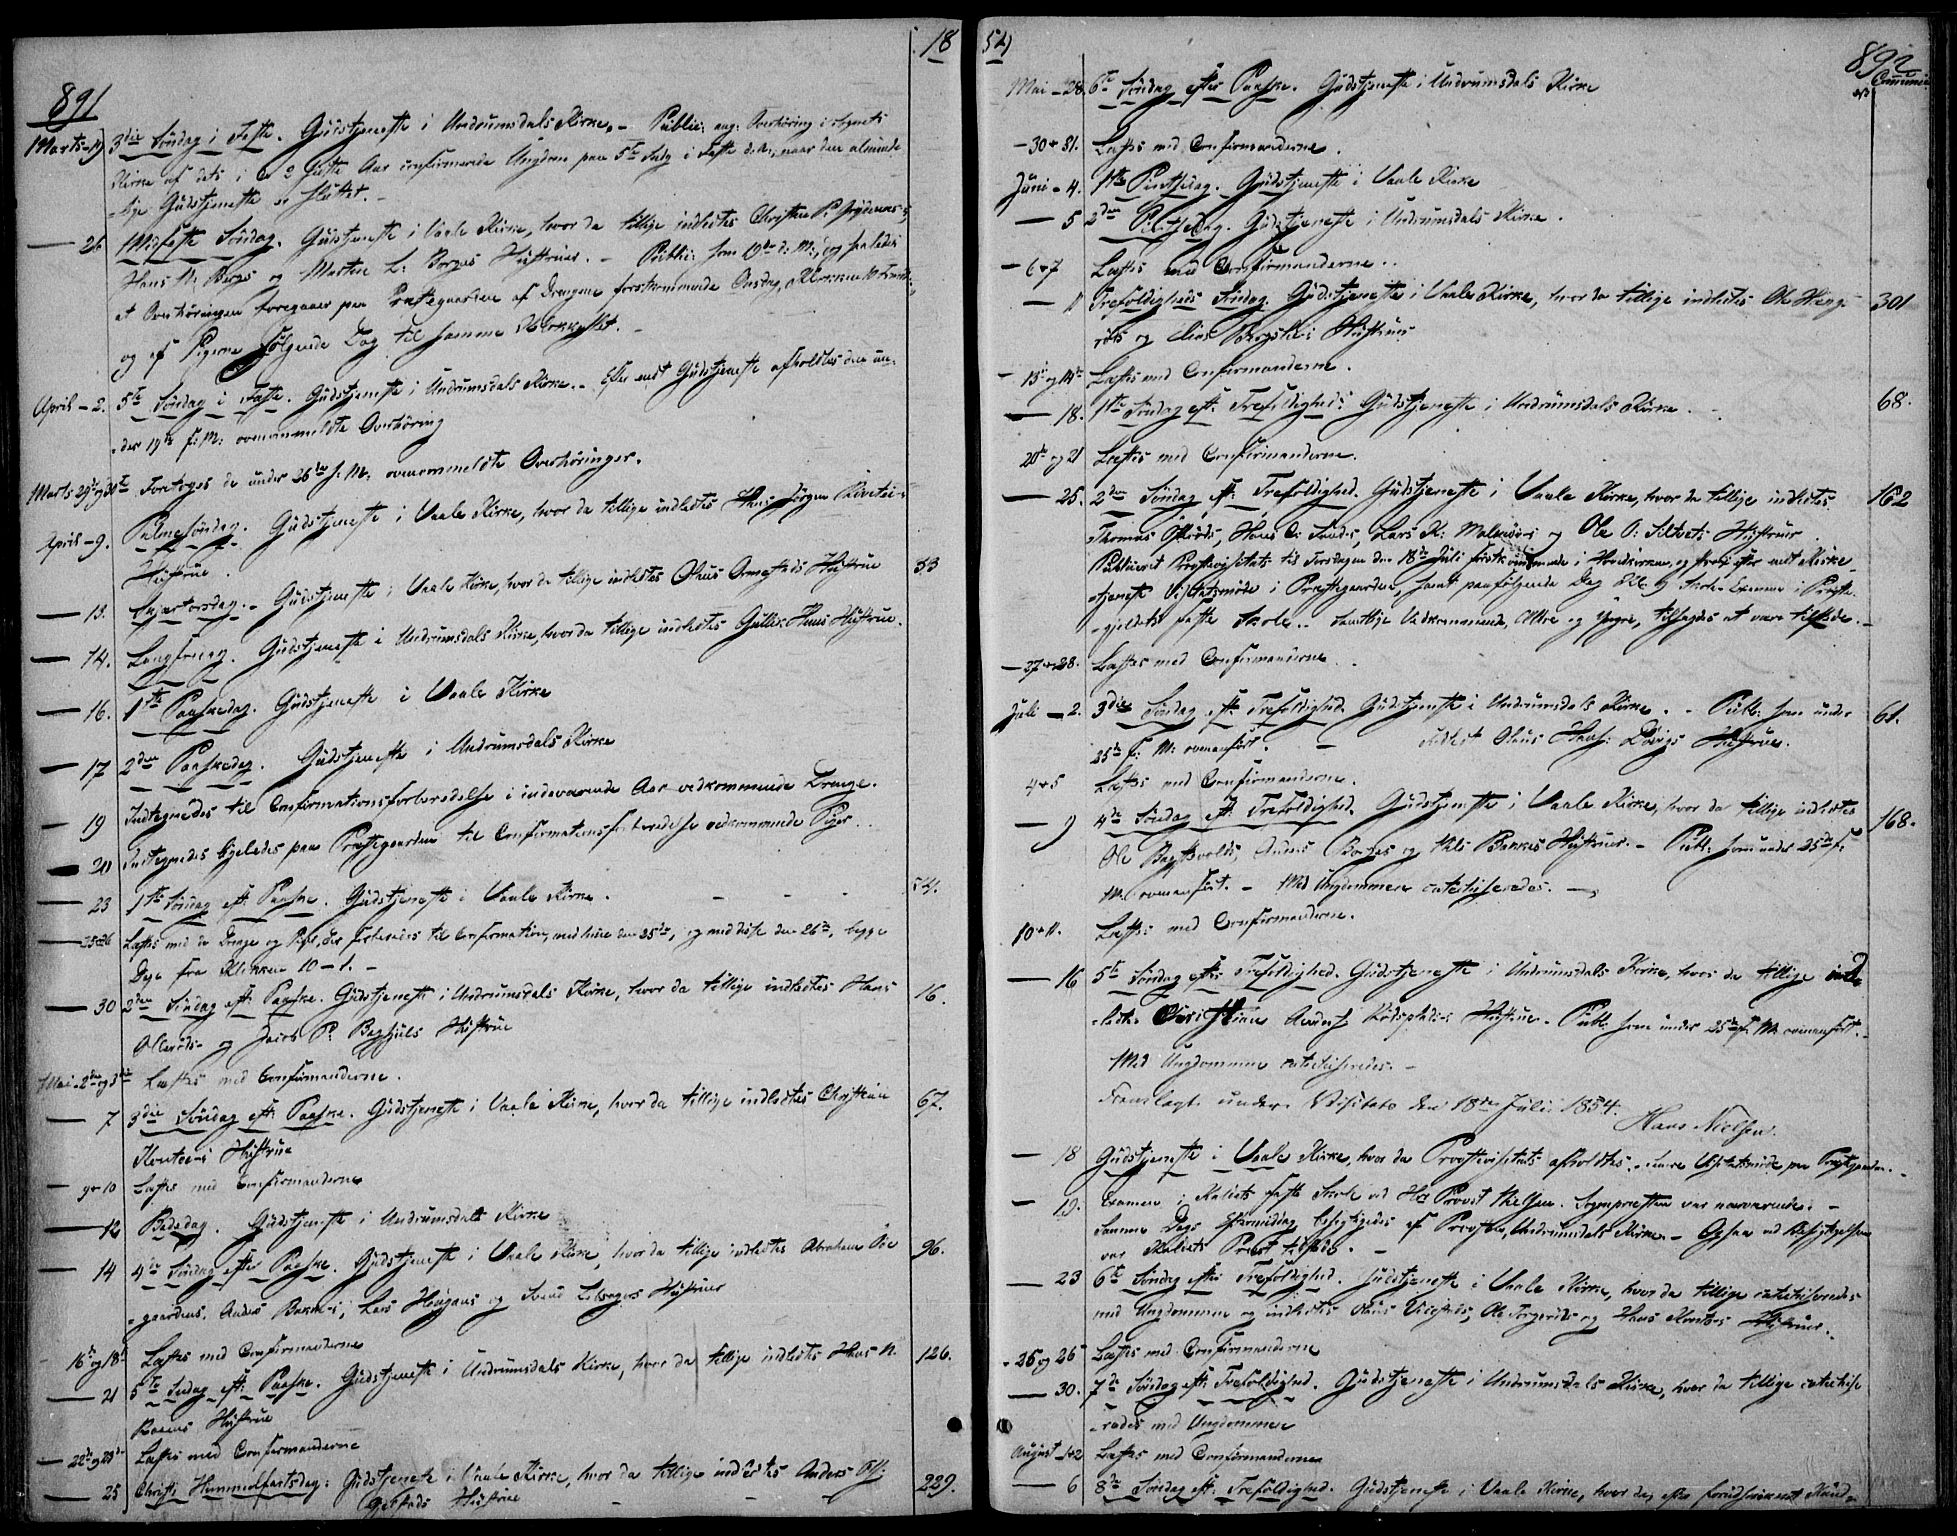 891
18
Marts-19 3die Søndag i Faste. Gudstjeneste i Undrumsdals Kirke. – Public: ang: Overhøring i Sognets
Kirke af dets i de 2 sidste Aar confirmerede Ungdom paa 5te Sndg i Faste d. A., naar den alminde-
-lige Gudstjeneste er sluttet. –
— 26 Midfaste Søndag. Gudstjeneste i Vaale Kirke, hvor da tillige indledtes Christen P.
Hans M: Berges og Morten L: Borges Hustruer. – Public: som 19de d: M:, og saaledes
at Overhøringen foregaaer paa Præstegaarden af Drengene førstkommende Onsdag, Klokken 10
og af Pigerne følgende Dag til samme Klokkeslet. –
April – 2. 5te Søndag i Faste. Gudstjeneste i Undrumsdals Kirke. – Efter endt Gudstjeneste afholdtes den un-
-der 19de f: M: ovenanmeldte Overhøring
Marts 29de og 30te Foretoges de under 26de f: M: ovenanmeldte Overhøringer.
April – 9. Palmesøndag. Gudstjeneste i Vaale Kirke, hvor da tillige indledtes Hans Jørgen
Hustrue.
— 13. Skjærtorsdag. – Gudstjeneste i Vaale Kirke, hvor da tillige indledtes Olaus Hustrue 53
— 14. Langfredag. Gudstjeneste i Undrumsdals Kirke, hvor da tillige indledtes Gullik Hustrue.
— 16. 1ste Paaskedag. Gudstjeneste i Vaale Kirke
— 17 2den Paaskedag. Gudstjeneste i Undrumsdals Kirke
— 19 Indtegnedes til Confirmationsforberedelse i indeværende Aar vedkommende Drenge.
— 20 Indtegnedes ligeledes paa Præstegaarden til Confirmationsforberedelse vedkommende Piger.
— 23 1ste Søndag eft: Paaske. Gudstjeneste i Vaale Kirke. – – – 54.
— 25 & 26 Læstes med de Drenge og Piger, der forberedes til Confirmation, med hine den 25de, og med disse den 26de, begge
Dage fra Klokken 10–1. –
— 30 2den Søndag eft: Paaske. Gudstjeneste i Undrumsdals Kirke, hvor da tillige indledtes Hans 16.
og Jacob P: Hustrue
Mai – 2den og 3die Læstes med Confirmanderne.
— 7 3die Søndag eft: Paaske. Gudstjeneste i Vaale Kirke, hvor da tillige indledtes Christian 67.
Hustrue
— 9 & 10 Læstes med Confirmanderne
— 12 Bededag. Gudstjeneste i Undrumsdals Kirke
— 14 4de Søndag efter Paaske. Gudstjeneste i Vaale Kirke, hvor da tillige indledtes Abraham 96.
-gaardens, Anders Lars og Hustruer
16de og 18de Læstes med Confirmanderne
— 21 5te Søndag eft: Paaske. Gudstjeneste i Undrumsdals Kirke, hvor da tillige indledtes Hans N. 126.
Hustrue
— 22de og 23de Læstes med Confirmanderne
— 25 Christi Himmelfartsdag: Gudstjeneste i Vaale Kirke, hvor da tillige indledtes Anders 229.
Hustrue – – –
54)
892
Communi-
Mai – 28 6te Søndag efter Paaske. Gudstjeneste i Undrumsdals Kirke
– 30 & 31. Læstes med Confirmanderne.
Juni – 4. 1ste Pintsedag. Gudstjeneste i Vaale Kirke
— 5 2den Pintsedag. Gudstjeneste i Undrumsdals Kirke.
– 6 & 7 Læstes med Confirmanderne.
— 11 Trefoldigheds Søndag. Gudstjeneste i Vaale Kirke, hvor da tillige indledtes Ole 301
og Hustruer
– 13de og 14de Læstes med Confirmanderne.
— 18. 1ste Søndag eft: Trefoldighed: Gudstjeneste i Undrumsdals Kirke. – 68.
20de og 21 Læstes med Confirmanderne.
— 25. 2den Søndag eft: Trefoldighed. Gudstjeneste i Vaale Kirke, hvor da tillige indledtes 162
Thomas Hans Lars og Ole Hustruer
Publiceret Provstevisitats til Tirsdagen den 18de Juli førstkommende i Hovedkirken, og hvor efter endt Kirke-
-tjeneste Visitatsmøde i Præstegaarden, samt paafølgende Dag Kl. 9 Skole-Examen i Præste-
-gjeldets faste Skole. – Samtlige Vedkommende, Ældre og Yngre, tilsagdes at være tilstede. –
— 27 & 28. Læstes med Confirmanderne.
Juli – 2. 3die Søndag eft: Trefoldighed. Gudstjeneste i Undrumsdals Kirke. – Publ: som under 61.
25de f: M: ovenanført. – Indledt Olaus Hans: Hustrue.
4 & 5 Læstes med Confirmanderne.
— 9 4de Søndag eft: Trefoldighed. Gudstjeneste i Vaale Kirke, hvor da tillige indledtes 168.
Ole Anders Borges og Nils Bakkes Hustruer. – Publ: som under 25de f:
M: ovenanført. – Med Ungdommen catechiseredes. –
10 & 11. Læstes med Confirmanderne.
— 16 5te Søndag efter Trefoldighed. Gudstjeneste i Undrumsdals Kirke, hvor da tillige ind-
-ledtes Christian Hustrue. Publ: som under 25de f: M: ovenanført. –
Med Ungdommen catechiseredes. –
Fremlagt under Visitats den 18de Juli 1854.
Hans Nielsen.
— 18 Gudstjeneste i Vaale Kirke, hvor da Provstevisitats afholdtes, senere Visitatsmøde paa Præstegaarden. –
— 19. Examen i Kaldets faste Skole ved Hr Provst Nielsen. Sognepræsten var nærværende. –
Samme Dags Eftermiddag besigtigedes af Provsten Undrumsdals Kirke. – Ogsaa ved Besigtigelsen
var Kaldets Præst tilstede. –
— 23 6te Søndag efter Trefoldighed. Gudstjeneste i Vaale Kirke, hvor da tillige catechiseredes
med Ungdommen og indledtes Olaus Ole og Hans Hustruer.
– 25 og 26 Læstes med Confirmanderne
— 30. 7de Søndag eft: Trefoldighed. Gudstjeneste i Undrumsdals Kirke, hvor da tillige catechise-
-redes med Ungdommen
August – 1 & 2 Læstes med Confirmanderne
— 6 8de Søndag eft: Trefoldighed. Gudstjeneste i Vaale Kirke, hvor da, efter forudskikket